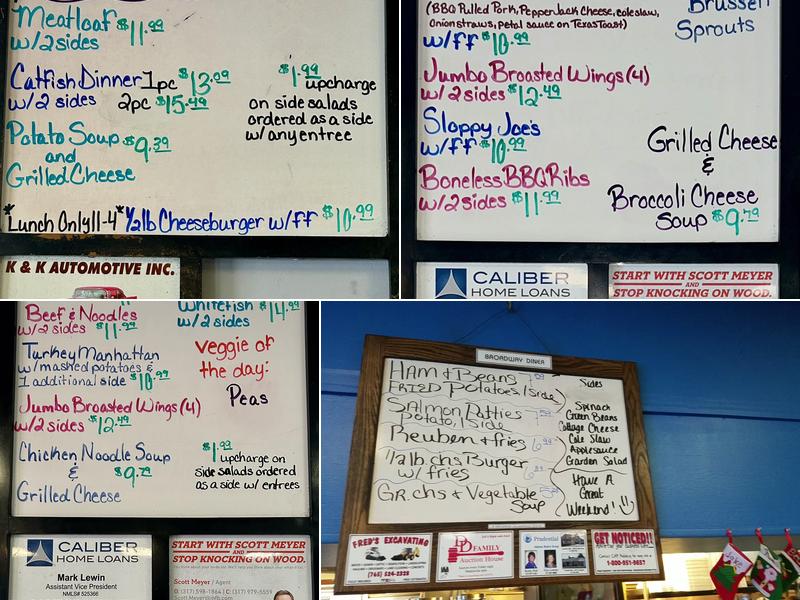 Meatloaf $11.99
w/2 sides
Catfish Dinner 1pc $13.09
w/2 sides 2pc $15.49
$1.99 upcharge
on side salads
ordered as a side
w/any entree
Potato Soup $9.39
and
Grilled Cheese
*Lunch Only 11-4* 1/2lb Cheeseburger w/ff $10.99
K & K AUTOMOTIVE INC.
(BBQ Pulled Pork, PepperJack Cheese, coleslaw,
Onionstraws, petal sauce on Texas Toast)
w/ff $10.99
Brussell
Sprouts
Jumbo Broasted Wings (4)
w/2 sides $12.49
Sloppy Joe's
w/ff $10.99
Boneless BBQ Ribs
w/2 sides $11.99
Grilled Cheese
&
Broccoli Cheese
Soup $9.79
CALIBER
HOME LOANS
START WITH SCOTT MEYER
AND
STOP KNOCKING ON WOOD.
Beef & Noodles
w/2 sides $11.99
Whitefish $14.99
w/2 sides
Turkey Manhattan
w/mashed potatoes &
1 additional side $10.99
Veggie of
the day:
Peas
Jumbo Broasted Wings (4)
w/2 sides $12.49
Chicken Noodle Soup
& $9.79
Grilled Cheese
$1.99
upcharge on
side salads ordered
as a side w/ entrees
CALIBER
HOME LOANS
Mark Lewin
Assistant Vice President
NMLS# 525366
START WITH SCOTT MEYER
AND
STOP KNOCKING ON WOOD.
Scott Meyer / Agent
BROADWAY DINER
HAM & Beans
FRIED Potatoes/side
SAlmon Patties
Potato, 1 Side
Reuben & fries
1/2lb chs Burger
w/ fries
GR. chs & Vegetable
Soup
Sides
Spinach
Green Beans
Cottage Cheese
Cole Slaw
Applesauce
Garden Salad
Have A
Great
Weekend!
FRED'S EXCAVATING
(765) 524-2328
FAMILY
Auction House
Prudential
GET NOTICED!!
1-800-951-9657